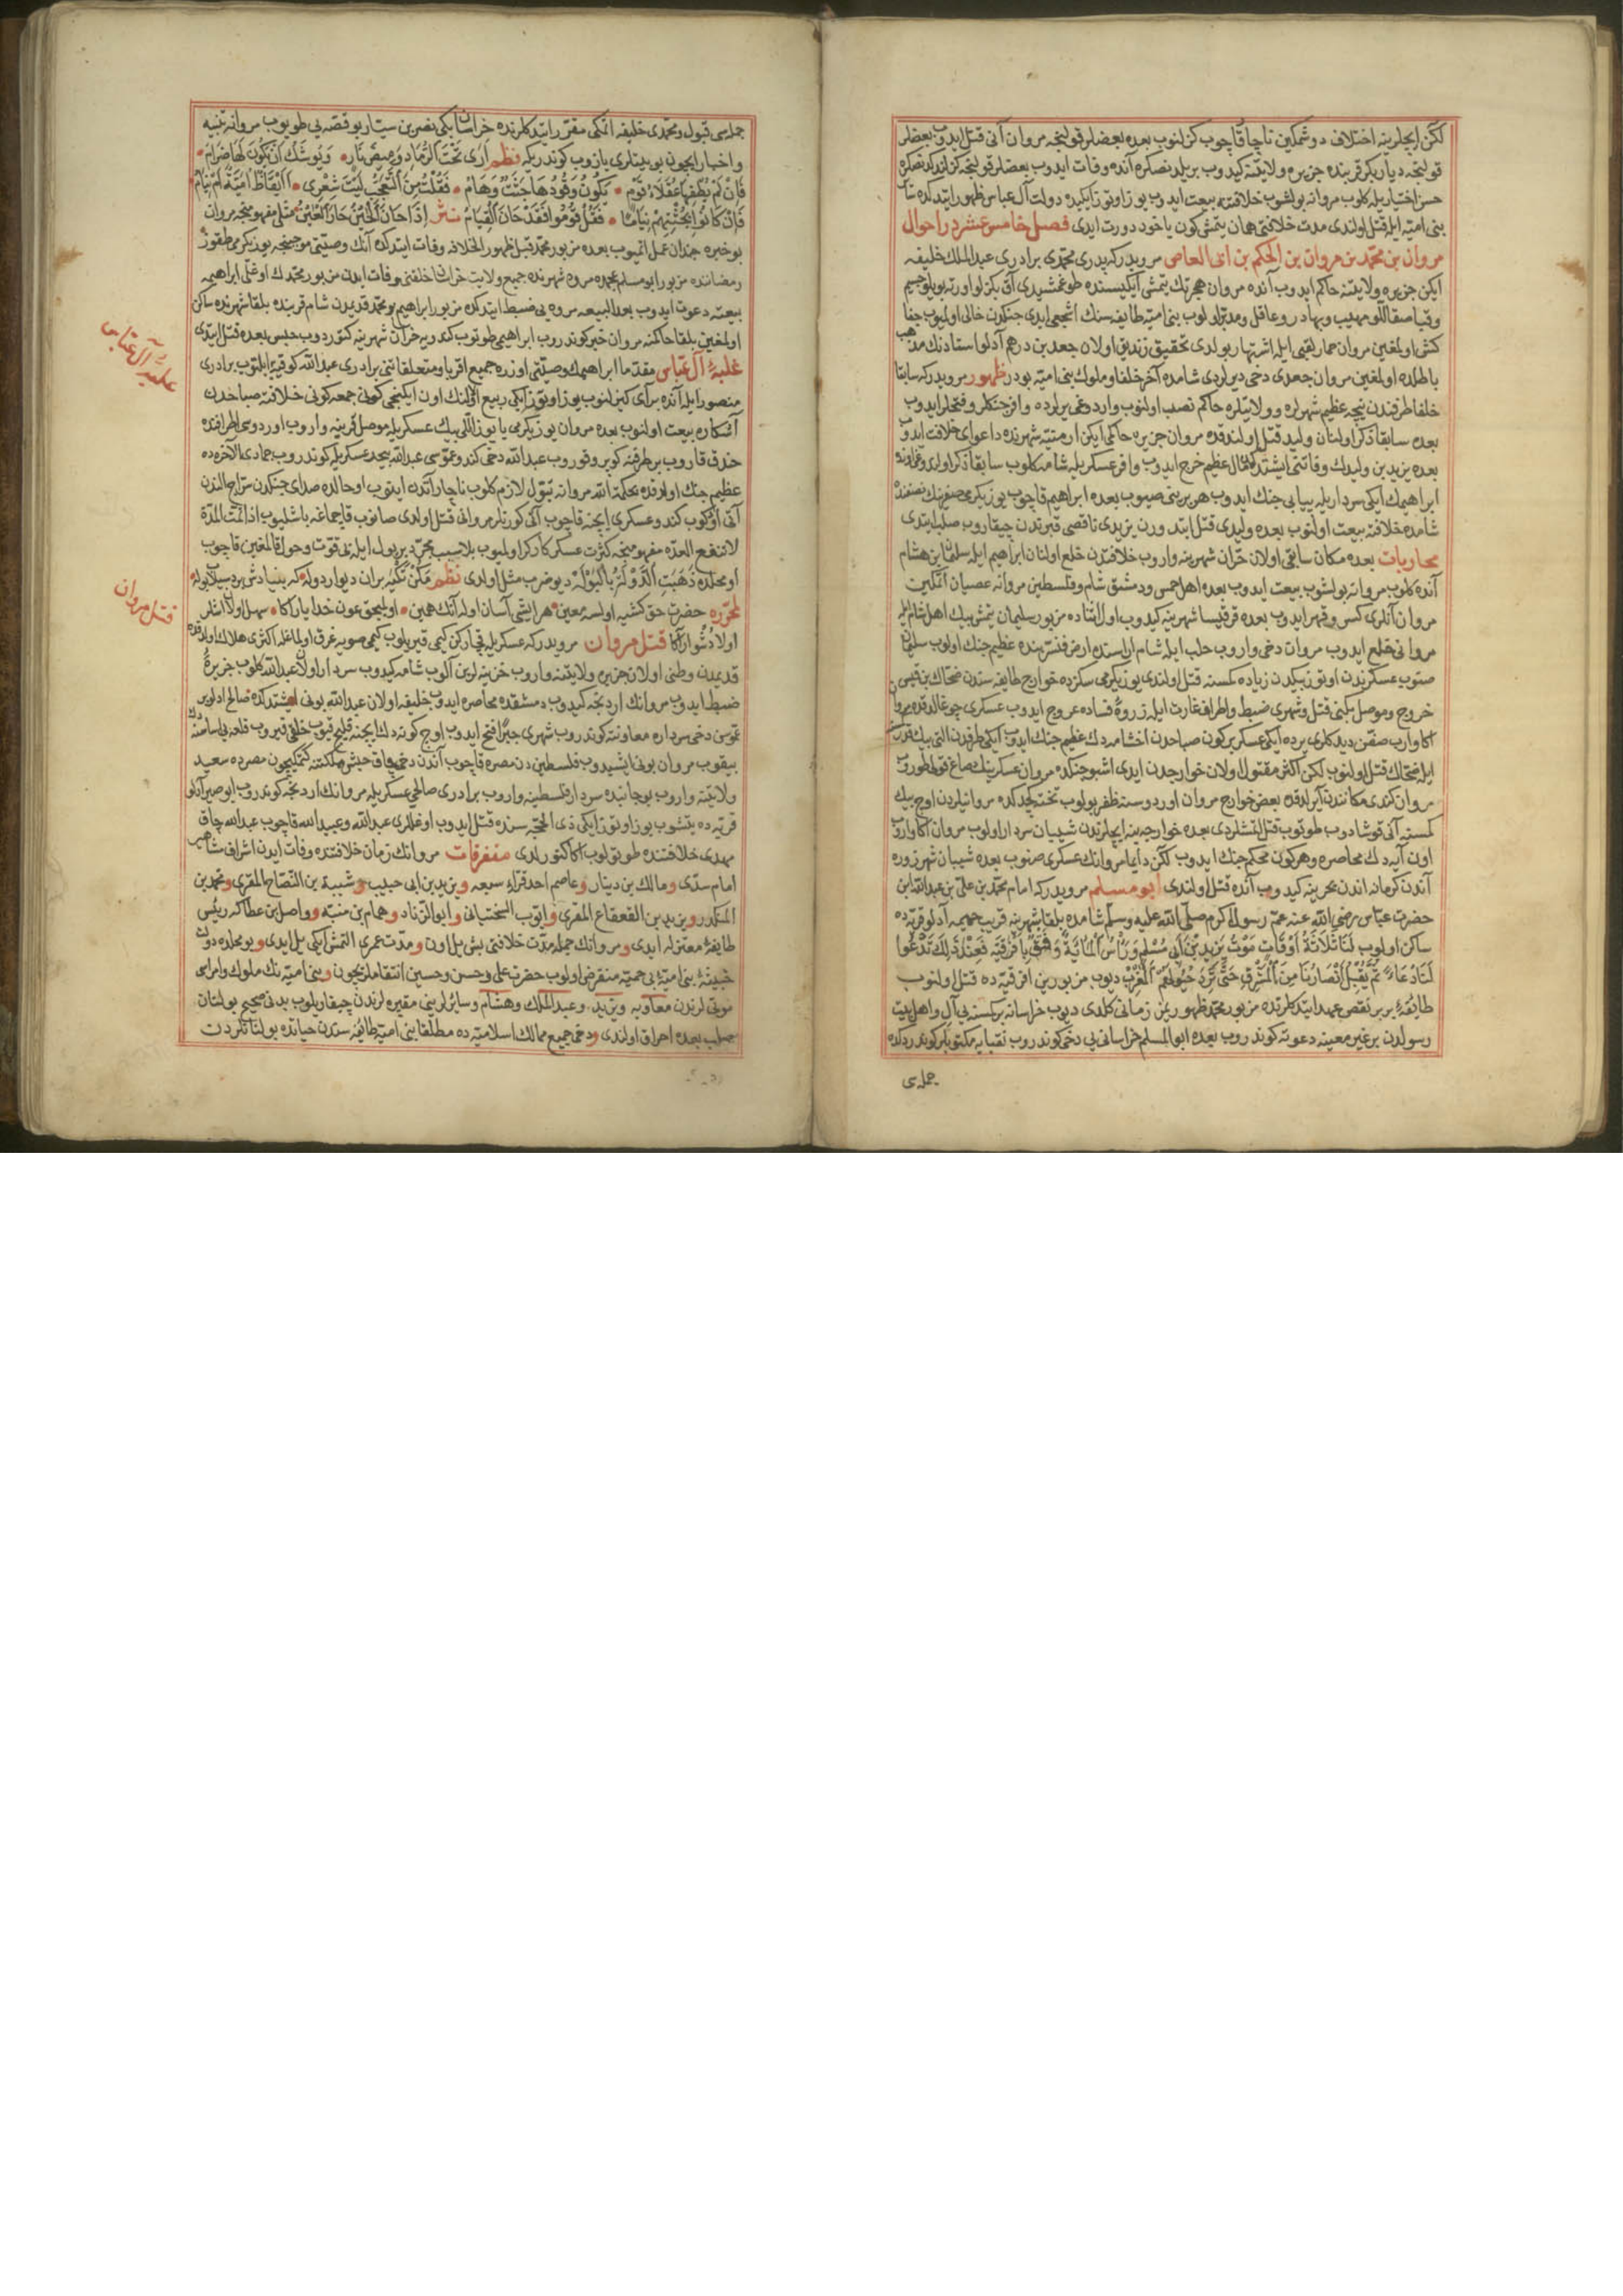 لكن ايچلرينه اختلاف دوشمكين ناچار قاچوب كزلنوب بعده بعضلر قولنجه مروان آنى قتل ايدوب بعضلر
قولنجه دياربكر قربنده جزيره ولايتنه كيدوب بر ييلدنصكره آنده وفات ايدوب بعضلر قولنجه
حسن اختياريله كلوب مروانه بولشوب خلافتنه بيعت ايدوب يوز اوتوز ايكيده دولت آل عباس ظهور ايتدكده
بنى اميه ايله قتل اولندى مدت خلافتى همان يتمش كون ياخود دورت ايدى فصل خامس عشر در احوال
مروان بن محمد بن مروان بن الحكم بن ابى العاص مرويدركه پدرى محمدى برادرى عبد الملك خليفه
ايكن جزيره ولايتنه حاكم ايدوب آنده مروان هجرتك يتمش ايكيسنده طوغمشيدى آق بكزلو اورته بويلو جسيم
وقبا صقاللو مهيب وبهادر وعاقل ومدبر اولوب بنى اميه طايفه سنك اشجعى ايدى جنكدن خالى اولميوب جفا
كش اولمغين مروان حمار لقبى ايله اشتهار بولدى تحقيق زنديق اولان جعد بن درهم آدلو استادنك مذهب
باطلنده اولمغين مروان جعدى دخى ديرلردى شامده آخر خلفا وملوك بنى اميه بودر ظهور مرويدركه سابقا
خلفا طرفندن نيجه عظيم شهرلره وولايتلره حاكم نصب اولنوب واردوغى يرلرده وافر جنكلر وفتحلر ايدوب
بعده سابقا ذكر اولنان وليد قتل اولندقده مروان جزيره حاكمى ايكن ارمنيه شهرنده داعواى خلافت ايدوب
بعده يزيد بن وليدك وفاتنى ايشتدكده مال عظيم خرج ايدوب وافر عسكريله شامه كلوب سابقا ذكر اولندوغى اوزره
ابراهيمك ايكى سرداريله بيابى جنك ايدوب هر برينى صيوب بعده ابراهيم قاچوب يوز يكرمى
شامده خلافته بيعت اولنوب بعده وليدى قتل ايتدورن يزيدى ناقصى قبرندن چيقاروب صلب ايتدى
محاربات بعده مكان سابقى اولان حران شهرينه واروب خلافتدن خلع اولنان ابراهيم ايله سليمان بن هشام
آنده كلوب مروانه بولشوب بيعت ايدوب بعده اهل حمص ودمشق شام وفلسطين مروانه عصيان اتمكين
مروان آنلرى كسر وقهر ايدوب بعده قرقيسا شهرينه كيدوب اول اثناده مزبور سليمان يتمش بيك اهل شام ايله
مروانى خلع ايدوب مروان دخى واروب حلب ايله شام اراسنده ارض قنسرينده عظيم جنك اولوب سليمان
صنوب عسكرندن اوتوز بيكدن زياده كمسنه قتل اولندى يوز يكرمى سكزده خوارج طايفه سندن ضحاك بن قيس
خروج وموصل بكنى قتل وشهرى ضبط واطراف غارت ايله زروۀ فساده عروج ايدوب عسكرى چوغالدقده مروان
اكا وارب صفين ديدكلرى يرده ايكى عسكر بر كون صباحدن اخشامه دك عظيم جنك ايدوب ايكى طرفدن التى بيك قدر
ايله ضحاك قتل اولنوب لكن اكثر مقتول اولان خوارجدن ايدى اشبو جنكده مروان عسكرينك صاغ قولى طوروب
مروان كندى مكانندن آيرلدقده بعض خوارج مروان اوردوسنه ظفر بولوب تخته كجدكده مروانيلردن اوچ بيك
كمسنه آنى قوشادوب طوتوب قتل اتمشلردى بعده خوارج ينه ايچلرندن شيبان سردار اولوب مروان اكا واروب
اون آيه دك محاصره وهر كون محكم جنك ايدوب لكن دايما مروانك عسكرى صنوب بعده شيبان شهرزوره
آندن كرمانه اندن بحرينه كيدوب آنده قتل اولندى ابو مسلم مرويدركه امام محمد بن على بن عبد الله ابن
حضرت عباس رضى الله عنه عم رسول اكرم صلى الله عليه وسلم شامده بلقا شهرينه قريب حميمه آدلو قريه ده
ساكن اولوب لَنَا ثَلَاثَةُ اَوْقَاتٍ مَوْتُ يَزِيدَ بْنِ اَبِى مُسْلِمٍ وَرَاْسُ الْمِائَةِ وَفَتْقٌ بِاِفْرِقِيَه فَعِنْدَ ذَلِكَ تَدْعُوا
لَنَا دُعَاءً ثُمَّ يُقْبِلُ اَنْصَارُنَا مِنَ الْمَشْرِقِ حَتَّى تَرِدَ خُيُولُهُمُ الْمَغْرِبَ ديوب مزبور يزيد افرقيه ده قتل اولنوب
طايفۀ بربر نقض عهد ايتدكلرنده مزبور محمد ظهوريمز زمانى كلدى ديوب خراسانه بر كمسنه يى آل واهل بيت
رسولدن بر غير معينه دعوته كوندروب بعده ابو المسلم خراسانى يى دخى كوندروب نقبايه مكتوبلر كوندردكده
جمله سى
جمله سى قبول ومحمدى خليفه اتمكى مقرر ايتدكلرنده خراسان بكى نصر بن سيار بو قصه يى طويوب مروانه تنبيه
واخبار ايچون بو بيتلرى يازوب كوندردىكه نظم اَرَى تَحْتَ الرَّمَادِ وَمِيضَ نَارٍ • وَيُوشَكُ اَنْ يَكُونَ لَهَا ضِرَامٌ •
فَاِنْ لَمْ يُطْفِهَا عُقَلَاءُ قَوْمٍ • يَكُونُ وَقُودُهَا جُثَثٌ وَهَامُ • فَقُلْتُ مِنَ التَّعَجُّبِ لَيْتَ شِعْرِى • اَاَيْقَاظٌ اُمَيَّةُ اَمْ نِيَامُ
فَاِنْ كَانُوا لِحِينِهِمْ نِيَامًا • فَقُلْ قُومُوا فَقَدْ حَانَ الْقِيَامُ نثر اِذَا حَانَ الْحَيْنُ حَارَ الْعَيْنُ مثلى مفهومنجه مروان
بو خبره چندان عمل اتميوب بعده مزبور محمد قبل ظهور الخلافه وفات ايتدكده آنك وصيتى موجبنجه يوز يكرمى طقوز
رمضاننده مزبور ابو مسلم عجمده مرو شهرنده جميع ولايت خراسان خلقنى وفات ايدن مزبور محمدك اوغلى ابراهيمه
بيعته دعوت ايدوب بعد البيعه مروى ضبط ايتدكده مزبور ابراهيم بو محمد قديمدن شام قربنده بلقا شهرنده ساكن
اولمغين بلقا حاكمنه مروان خبر كوندروب ابراهيمى طوتوب كندويه حران شهرينه كتوردوب حبس بعده قتل ايتدى
غلبۀ آل عباس مقدما ابراهيمك وصيتى اوزره جميع اقربا ومتعلقاتنى برادرى عبد الله كوفيه ايلتوب برادرى
منصور ايله آنده بر آى كزلنوب يوز اوتوز ايكى ربيع الاولنك اون ايكنجى كونى جمعه كونى خلافته صباحدن
آشكاره بيعت اولنوب بعده مروان يوز يكرمى ياتوز اللى بيك عسكريله موصل قربنه واروب اوردوسى اطرافنده
خندق قازوب بر طرفنه كوپرو قوروب عبد الله دخى كندو عموسى عبد الله بيحد عسكريله كوندروب جمادى الآخره ده
عظيم جنك اولورقده بحكمة الله مروانه تبول لازم كلوب ناچار آتدن اينوب اوحالده صداى جنكدن
آنى اوركوب كندو عسكرى ايچنه قاچوب آنى كورنلر مروانى قتل اولندى صانوب قاچماغه باشليوب اذا تمت المدة
لا تنفع العدة مفهومنجه كثرت عسكر كاركر اولميوب بلا سبب مجرد بر بول ايله ذى قوت وحول قالمغين قاچوب
اول محلده ذَهَبَتِ الدَّوْلَةُ بِالْبَوْلَةِ ديو ضرب مثل اولندى نظم مَكُنْ تَكْيَه بران ديوار دوله • كه بنيادش بود سيلاب بوله •
لمحرره حضرت حق كشيه اولسه معين • هر ايشى آسان اولور آنك همين • اوليجق عون خدا يار اكا • سهل اولان ايشلر
اولا دشوار اكا قتل مروان مرويدركه عسكريله قچاركن كيمى قيريلوب كيمى صويه غرق اولمغله اكثرى هلاك اولدقده
قديمدن وطنى اولان جزيره ولايتنه واروب خزينه لرين آلوب شامه كيدوب سردار اولان عبد الله كلوب جزيره
ضبط ايدوب مروانك اردنجه كيدوب دمشقده محاصره ايدوب خليفه اولان عبد الله بونى ايشتدكده صالح ادلو بر
عموسن دخى سرداره معاونته كوندروب شهرى جبرا فتح ايدوب اوچ كونه دك ايچنه قليج قيوب خلقى قيروب قلعه يى
يقوب مروان بونى ايشيدوب فلسطين دن مصره قاچوب آندن دخى حبش مملكتنه كتمكيچون مصرده سعيد
ولايتنه واروب بو جانبده سردار فلسطينه واروب برادرى صالحى عسكريله مروانك اردنجه كوندروب ابوصير آدلو
قريه ده يتشوب يوز اوتوز ايكى ذى الحجه سنده قتل ايدوب اوغللرى عبد الله وعبيد الله قاچوب عبد الله
مهدى خلافتنده طوتيلوب اكا كتورلدى متفرقات مروانك زمان خلافتنده وفات ايدن اشراف مشاهير
امام سدى ومالك بن دينار وعاصم احد قراء سبعه ويزيد بن ابى حبيب وشيبة بن النصاح المقرى ومحمد بن
المنكدر ويزيد بن القعقاع المقرى وايوب السختيانى وابو الزناد وهمام بن منبه وواصل بن عطا كه رئيس
طايفۀ معتزله ايدى ومروانك جمله مدت خلافتى بش ييل اون ومدت عمرى التمش ايكى ييل ايدى وبو محلده دولت
خبيثۀ بنى اميۀ بى حميه منقرض اولوب حضرت على وحسن وحسين انتقاملريچون وبنى اميه نك ملوك وامراسى
موتى لرندن معاويه ويزيد وعبد الملك وهشام وسائرلرينى مقبره لرندن چيقاريلوب بدنى صحيح بولنان
صلب بعده احراق اولندى ودخى جميع ممالك اسلاميه ده مطلقا بنى اميه طايفه سندن حياتده بولنانلردن
غلبۀ آل عباس
قتل مروان